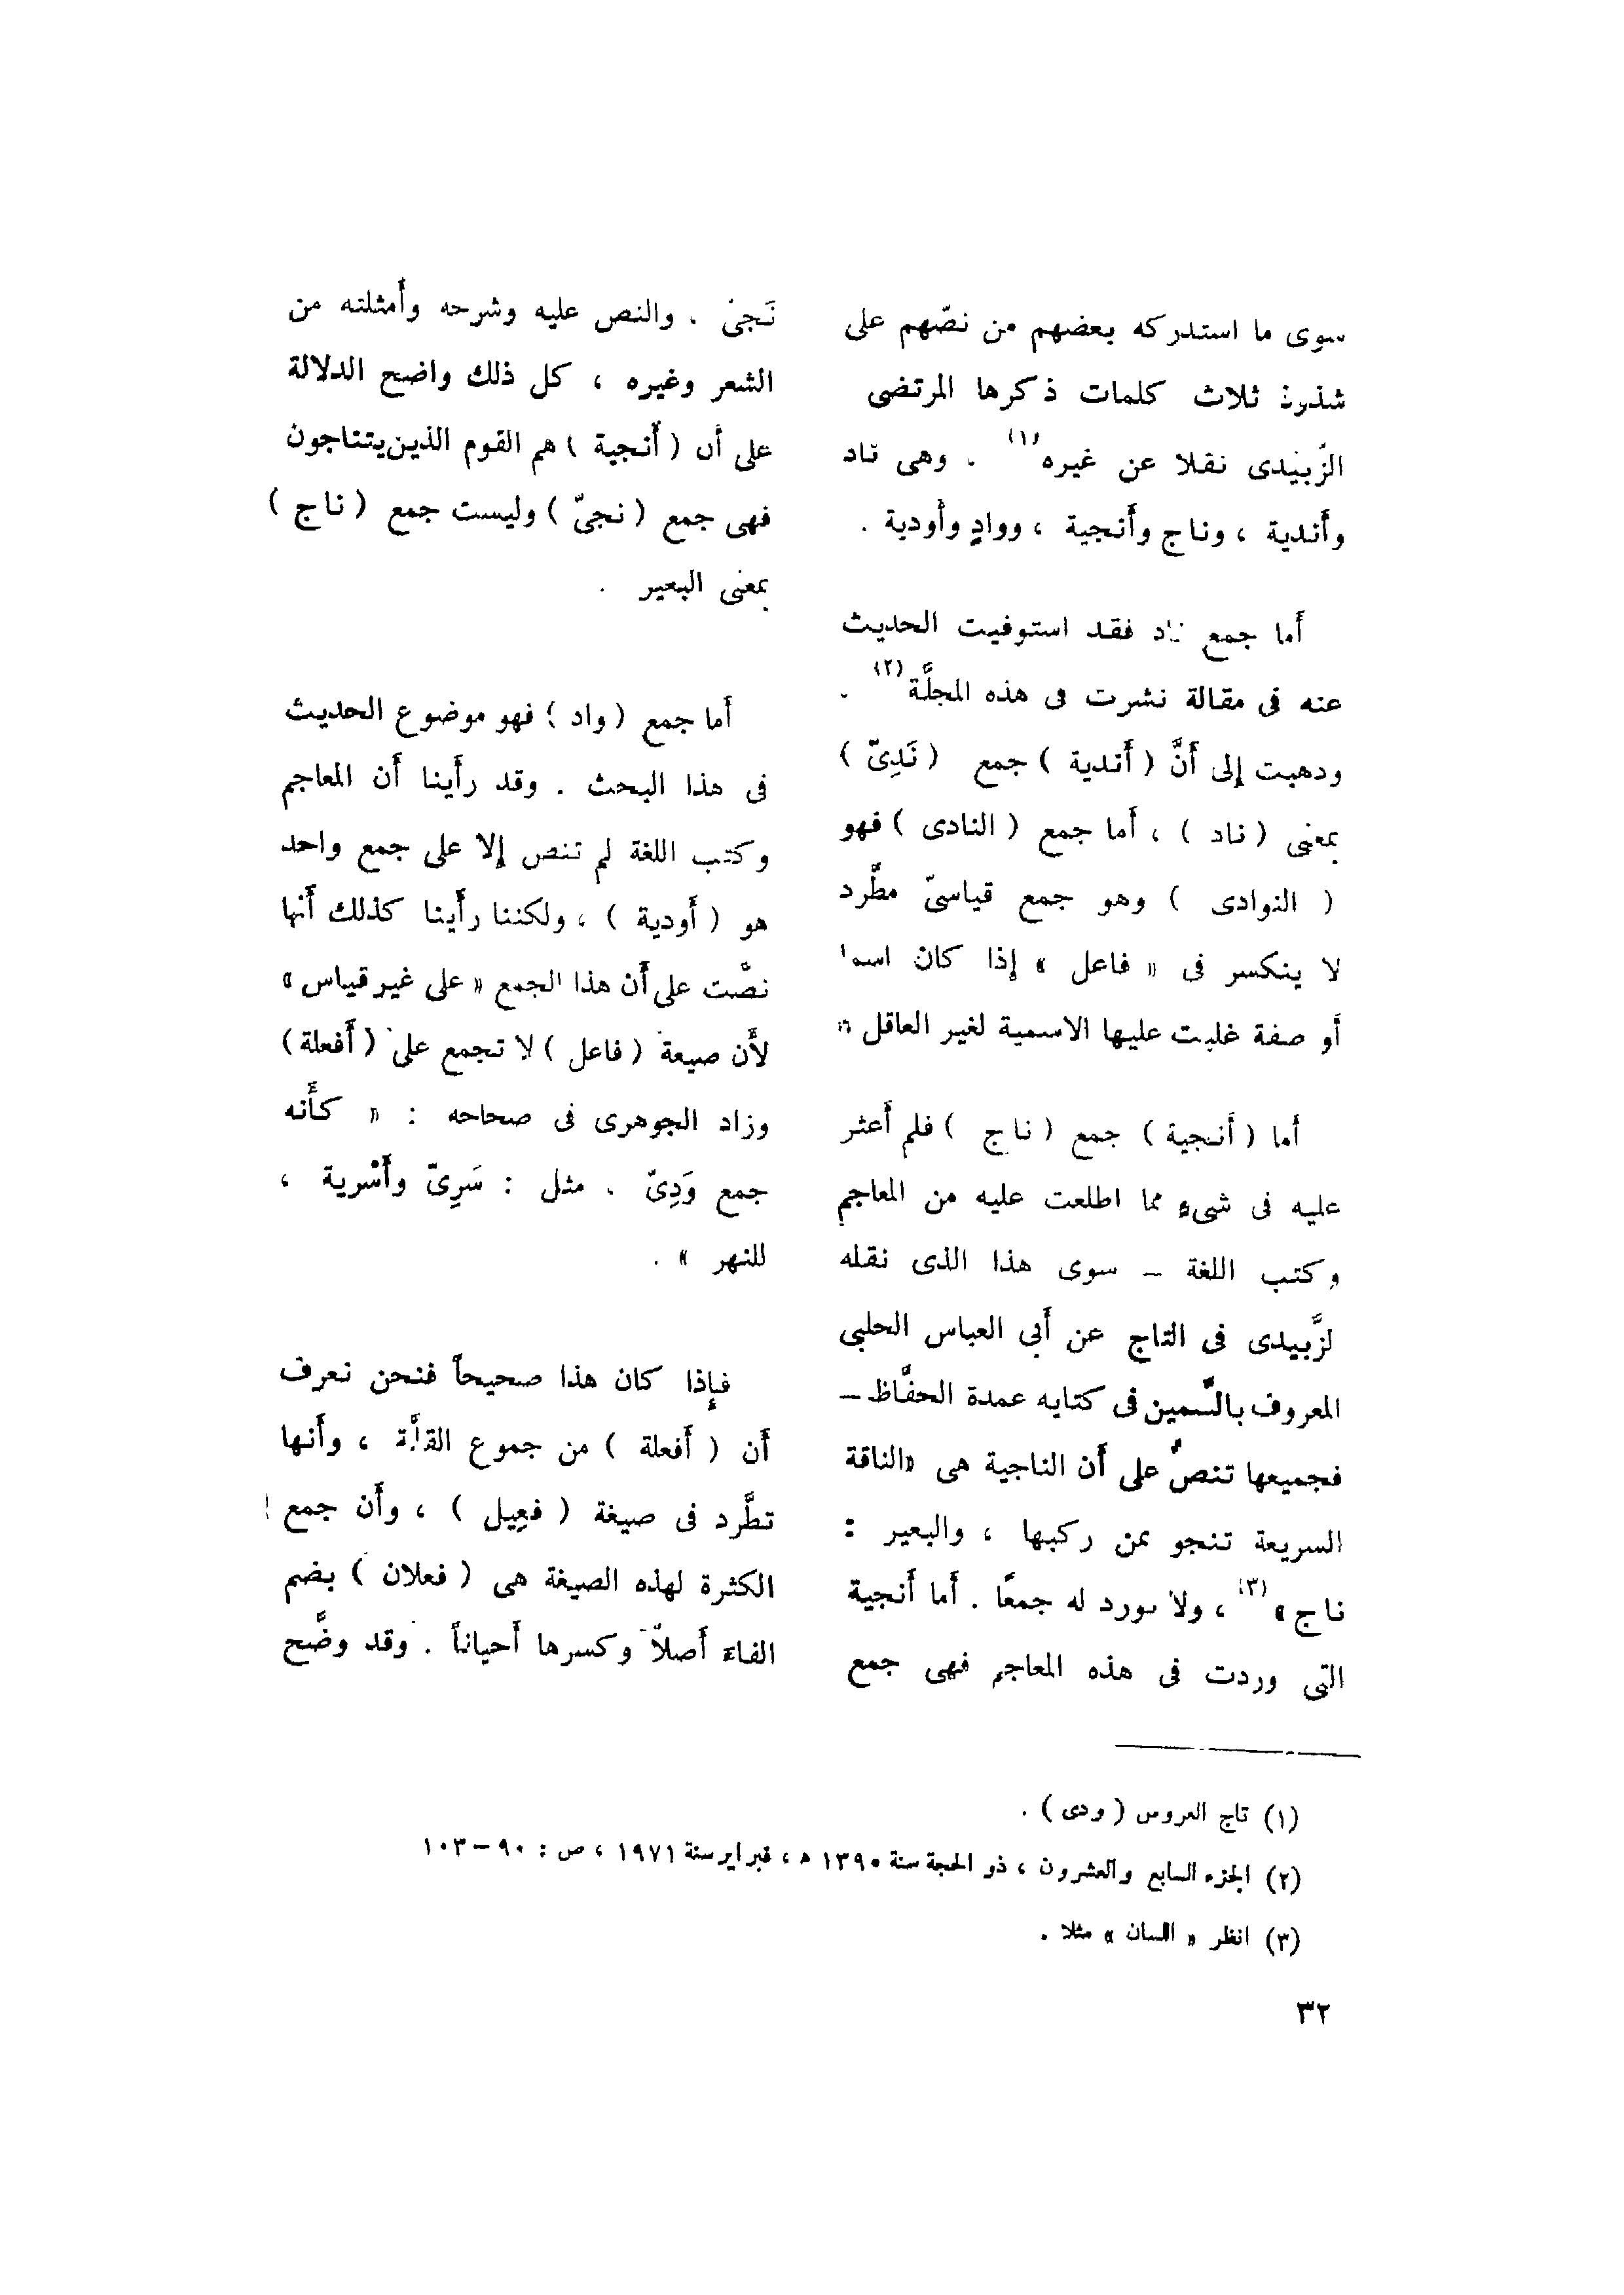 سوى ما استدركه بعضهم من نصّهم على
شذوذ ثلاث كلمات ذكرها المرتضى
الزَّبيدى نقلا عن غيره (١) . وهى ناد
وأندية ، وناج وأنجية ، ووادٍ وأودية .
أما جمع ناد فقد استوفيت الحديث
عنه فى مقالة نشرت فى هذه المجلَّة (٢) .
ودهبت إلى أَنَّ ( أندية ) جمع ( نَدِىّ )
بمعنى ( ناد ) ، أما جمع ( النادى ) فهو
( النوادى ) وهو جمع قياسىّ مطَّرد
لا ينكسر فى « فاعل » إذا كان اسما
أو صفة غلبت عليها الاسمية لغير العاقل »
أما ( أنجية ) جمع ( ناج ) فلم أعثر
عليه فى شىءٍ مما اطلعت عليه من المعاجم
وكتب اللغة – سوى هذا الذى نقله
لزَّبيدى فى التاج عن أبى العباس الحلبى
المعروف بالسَّمين فى كتابه عمدة الحفَّاظ –
فجميعها تنصُّ على أن الناجية هى «الناقة
السريعة تنجو بمن ركبها ، والبعير :
ناج» (٣) ، ولا يورد له جمعًا . أما أنجية
التى وردت فى هذه المعاجم فهى جمع
نَجىّ . والنص عليه وشرحه وأمثلته من
الشعر وغيره ، كل ذلك واضح الدلالة
على أن ( أنجية ) هم القوم الذين يتناجون
فهى جمع ( نجىّ ) وليست جمع ( ناج )
بمعنى البعير .
أما جمع ( واد ) فهو موضوع الحديث
فى هذا البحث . وقد رأينا أن المعاجم
وكتب اللغة لم تنص إلا على جمع واحد
هو ( أودية ) ، ولكننا رأينا كذلك أنها
نصَّت على أن هذا الجمع « على غير قياس »
لأن صيغة ( فاعل ) لا تجمع على ( أفعلة )
وزاد الجوهرى فى صحاحه : « كأنه
جمع وَدِىّ . مثل : سَرِىّ وأَسْرية ،
للنهر » .
فإذا كان هذا صحيحاً فنحن نعرف
أن ( أفعلة ) من جموع القلَّة ، وأنها
تطَّرد فى صيغة ( فعِيل ) ، وأن جمع
الكثرة لهذه الصيغة هى ( فعلان ) بضم
الفاء أصلاً وكسرها أحياناً . وقد وضَّح
(١) تاج العروس ( ودى ) .
(٢) الجزء السابع والعشرون ، ذو الحجة سنة ١٣٩٠ ه ، فبراير سنة ١٩٧١ ، ص : ٩٠ – ١٠٣
(٣) انظر « اللسان » مثلا .
٣٢